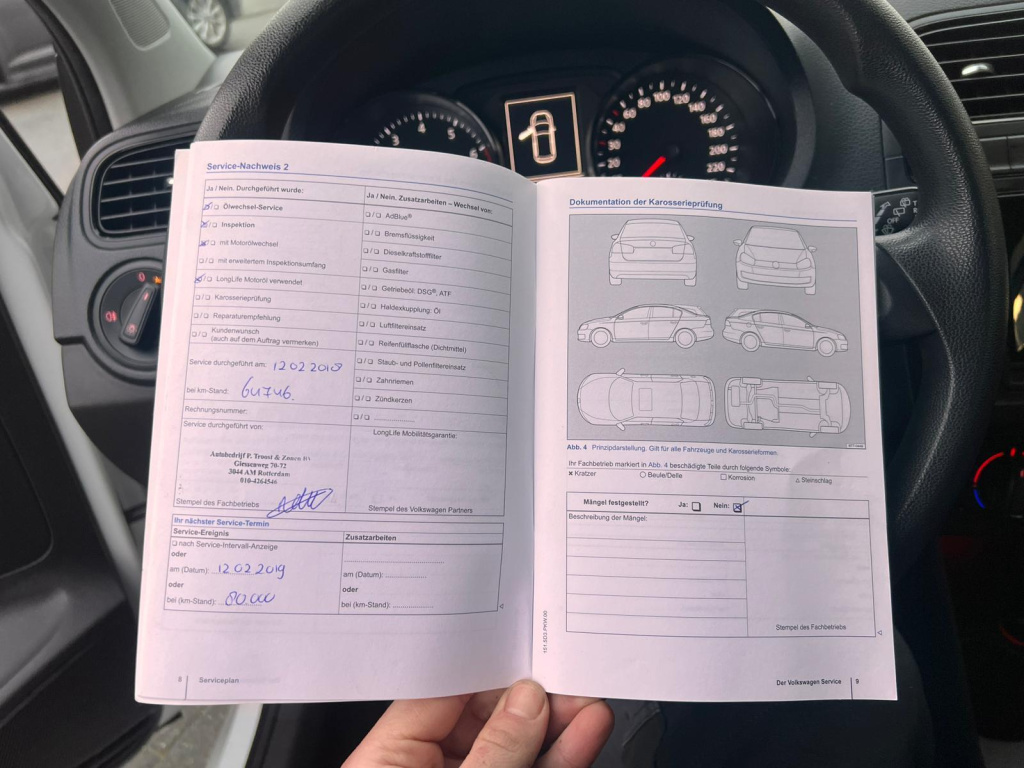 Service-Nachweis 2
Ja / Nein. Durchgeführt wurde:
❏/❏ Ölwechsel-Service
❏/❏ Inspektion
❏/❏ mit Motorölwechsel
❏/❏ mit erweitertem Inspektionsumfang
❏/❏ LongLife Motoröl verwendet
❏/❏ Karosserieprüfung
❏/❏ Reparaturempfehlung
❏/❏ Kundenwunsch
(auch auf dem Auftrag vermerken)
Service durchgeführt am: 12 02 2018
bei km-Stand: 64746.
Rechnungsnummer:
Service durchgeführt von:
Autobedrijf P. Troost & Zonen
Giessenweg 70-72
3044 AM Rotterdam
010-4264546
2.
Stempel des Fachbetriebs
Ja / Nein. Zusatzarbeiten – Wechsel von:
❏/❏ AdBlue®
❏/❏ Bremsflüssigkeit
❏/❏ Dieselkraftstofffilter
❏/❏ Gasfilter
❏/❏ Getriebeöl: DSG®, ATF
❏/❏ Haldexkupplung: Öl
❏/❏ Luftfiltereinsatz
❏/❏ Reifenfüllflasche (Dichtmittel)
❏/❏ Staub- und Pollenfiltereinsatz
❏/❏ Zahnriemen
❏/❏ Zündkerzen
❏/❏ ................
LongLife Mobilitätsgarantie:
Stempel des Volkswagen Partners
Ihr nächster Service-Termin
Service-Ereignis
❏ nach Service-Intervall-Anzeige
oder
am (Datum): 12 02 2019
oder
bei (km-Stand): 80.000
Zusatzarbeiten
am (Datum): ................
oder
bei (km-Stand): ................
8 Serviceplan
Dokumentation der Karosserieprüfung
Abb. 4 Prinzipdarstellung. Gilt für alle Fahrzeuge und Karosserieformen.
Ihr Fachbetrieb markiert in Abb. 4 beschädigte Teile durch folgende Symbole:
✖ Kratzer ○ Beule/Delle □ Korrosion △ Steinschlag
Mängel festgestellt? Ja: ❏ Nein: ☒
Beschreibung der Mängel:
Stempel des Fachbetriebs
Der Volkswagen Service 9
3 4 5 6
20 30 40 60 80 100 120 140 160 180 200 220
OFF